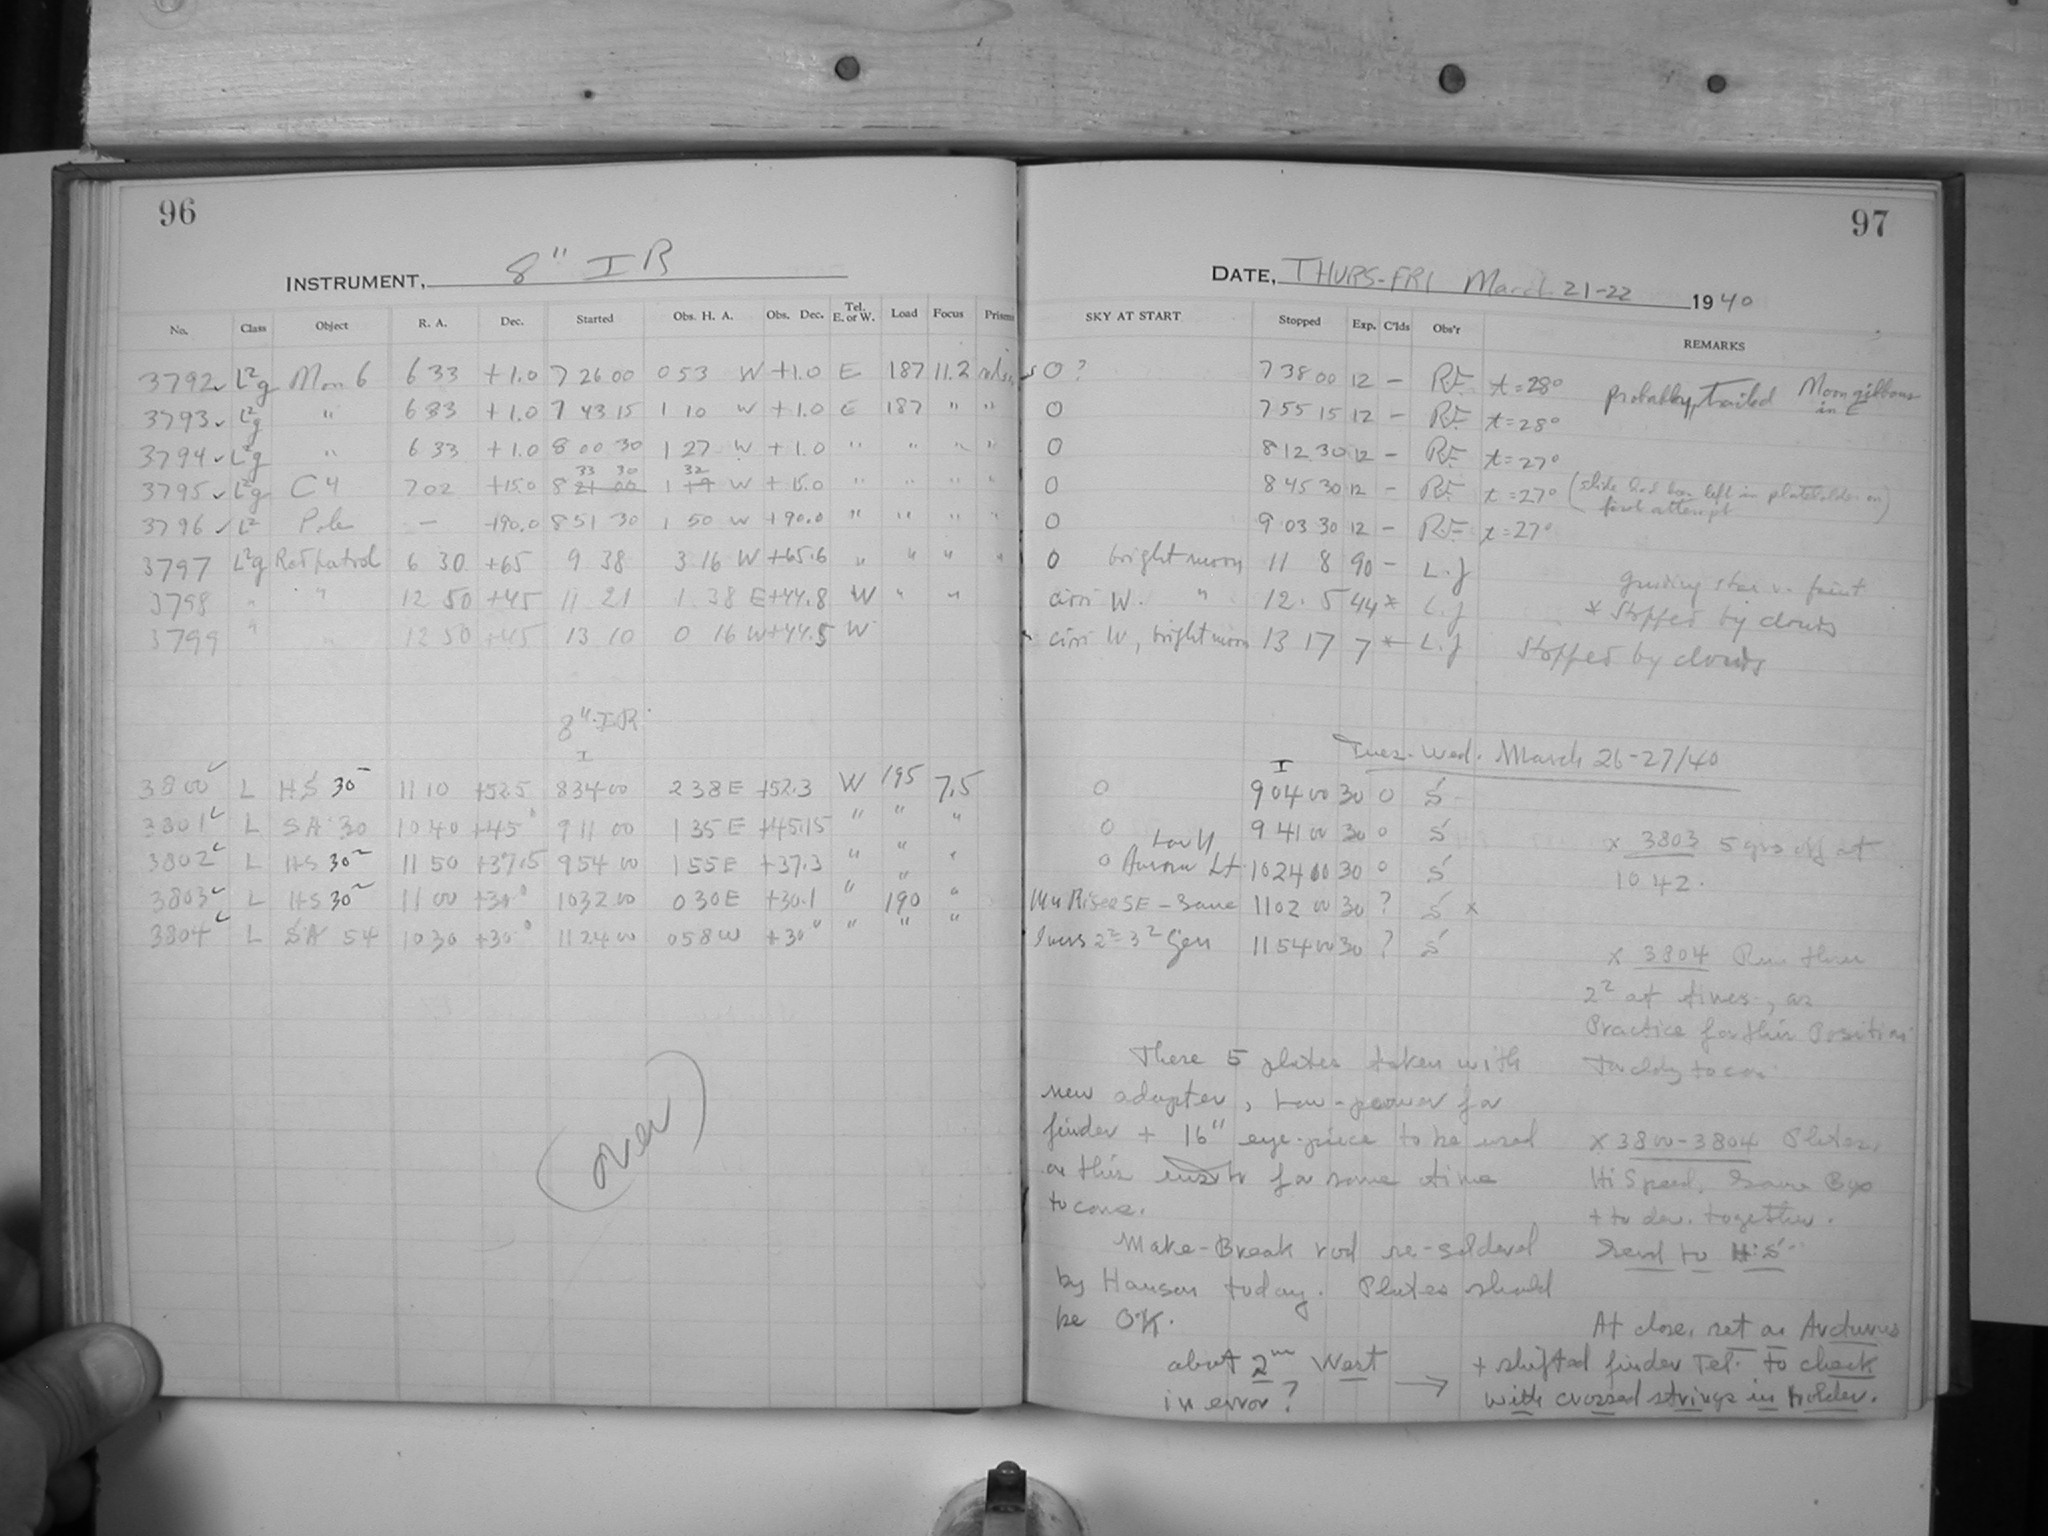 96
97
INSTRUMENT, 8" IR
DATE, THURS-FRI March 21-22 1940
No. Class Object R. A. Dec. Started Obs. H. A. Obs. Dec. Tel. E. or W. Load Focus Prism SKY AT START Stopped Exp. C'lds Obs'r REMARKS
3792 L²g Mon 6 6 33 +1.0 7 26 00 0 53 W +1.0 E 187 11.2 O ? 7 38 00 12 – RF t=28° probably trailed Moon gibbous in E
3793 L²g " 6 33 +1.0 7 43 15 1 10 W +1.0 E 187 " " O 7 55 15 12 – RF t=28°
3794 L²g " 6 33 +1.0 8 00 30 1 27 W +1.0 " " " " O 8 12 30 12 – RF t=27°
33 30 32
3795 L²g C4 7 02 +15.0 8 21 00 1 19 W +15.0 " " " " O 8 45 30 12 – RF t=27° (slide had been left in plateholder on first attempt)
3796 L² Pole — +90.0 8 51 30 1 50 W +90.0 " " " " O 9 03 30 12 – RF t=27°
3797 L²g Red patrol 6 30 +65 9 38 3 16 W +65.6 " " " " O bright moon 11 8 90 – L.J
3798 " " 12 50 +45 11 21 1 38 E +44.8 W " " cirri W. " 12 5 44* L.J guiding star v. faint * Stopped by clouds
3799 " " 12 50 +45 13 10 0 16 W +44.5 W cirri W, bright moon 13 17 7 * L.J Stopped by clouds
8" IR
Tues-Wed. March 26-27/40
I I
3800 L HS 30 11 10 +52.5 8 34 00 2 38 E +52.3 W 195 7.5 O 9 04 00 30 0 S
3801 L SA 30 10 40 +45° 9 11 00 1 35 E +45.15 " " " O 9 41 00 30 0 S
3802 L HS 30 11 50 +37.5 9 54 00 1 55 E +37.3 " " " O Low N Aurora Lt 10 24 00 30 0 S
3803 L HS 30 11 00 +30° 10 32 00 0 30 E +30.1 " 190 " Mn Rise SE – Same 11 02 00 30 ? S x
3804 L SA 54 10 30 +30° 11 24 00 0 58 W +30° " " " 2²-3² Gen 11 54 00 30 ? S
x 3803 5 off at
10 42.
x 3804 Run thru
2² at times, as
Practice for this Position
These 5 plates taken with
new adapter, Low-power for
finder + 16" eye-piece to be used
on this for some time
to come.
x 3800-3804 Plates,
Hi Speed, Same Box
+ to dev. together.
Send to H.S.
Make-Break rod re-soldered
by Hansen today. Plates should
be O.K.
(over)
about 2ᵐ West
in error? →
At close, set on Arcturus
+ shifted finder Tel. to check
with crossed strings in holder.